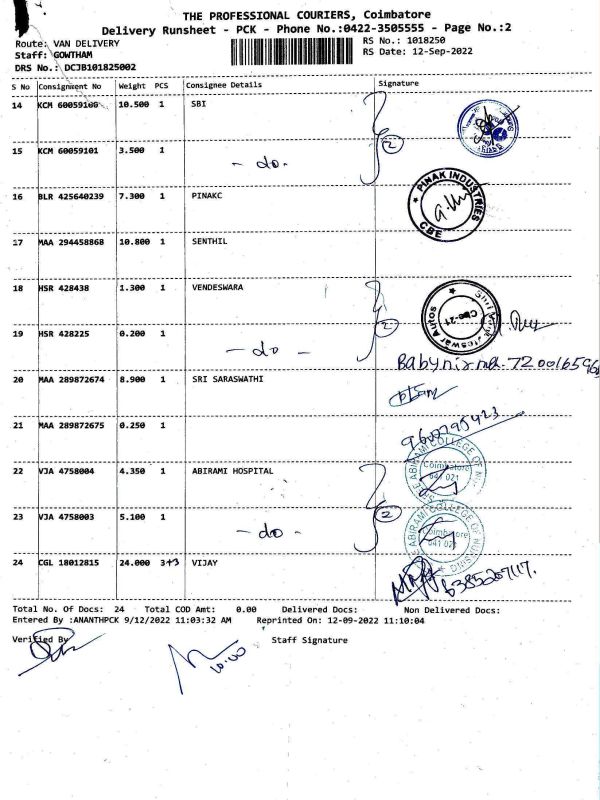 THE PROFESSIONAL COURIERS, Coimbatore
Delivery Runsheet - PCK - Phone No.:0422-3505555 - Page No.:2
Route: VAN DELIVERY
RS No.: 1018250
Staff: GOWTHAM
RS Date: 12-Sep-2022
DRS No.: DCJB101825002
S No Consignment No Weight PCS Consignee Details Signature
14 KCM 60059100 10.500 1 SBI
2
15 KCM 60059101 3.500 1
- do -
16 BLR 425640239 7.300 1 PINAKC
PINAK INDUSTRIES
CBE
17 MAA 294458868 10.800 1 SENTHIL
18 HSR 428438 1.300 1 VENDESWARA
2
19 HSR 428225 0.200 1
- do -
20 MAA 289872674 8.900 1 SRI SARASWATHI
21 MAA 289872675 0.250 1
9600795423
22 VJA 4758004 4.350 1 ABIRAMI HOSPITAL
2
Coimbatore
641 021
23 VJA 4758003 5.100 1
- do -
Coimbatore
641 021
24 CGL 18012815 24.000 3+3 VIJAY
Total No. Of Docs: 24 Total COD Amt: 0.00 Delivered Docs: Non Delivered Docs:
Entered By :ANANTHPCK 9/12/2022 11:03:32 AM Reprinted On: 12-09-2022 11:10:04
Verified By
Staff Signature
10.00